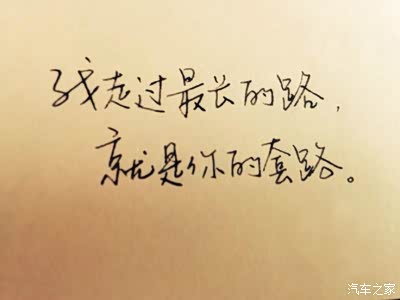 我走过最长的路，
就是你的套路。
汽车之家